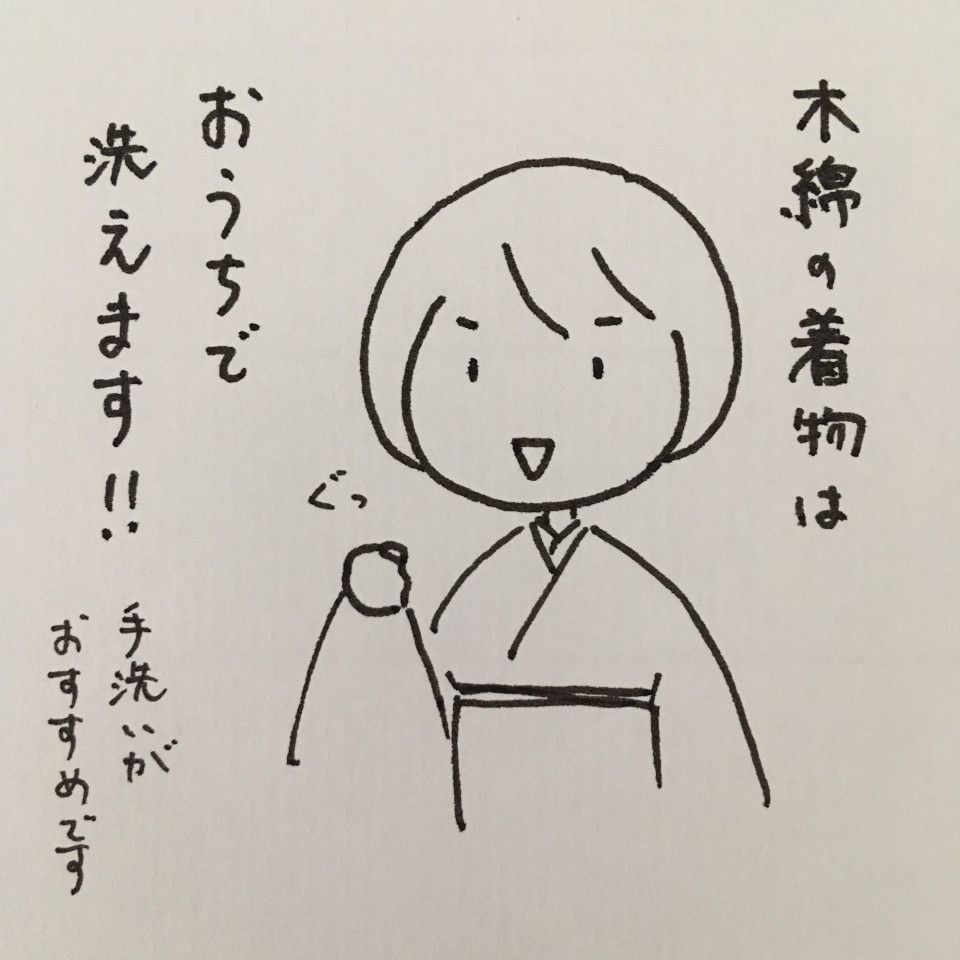 木綿の着物は
おうちで
洗えます!!
ぐっ
手洗いが
おすすめです